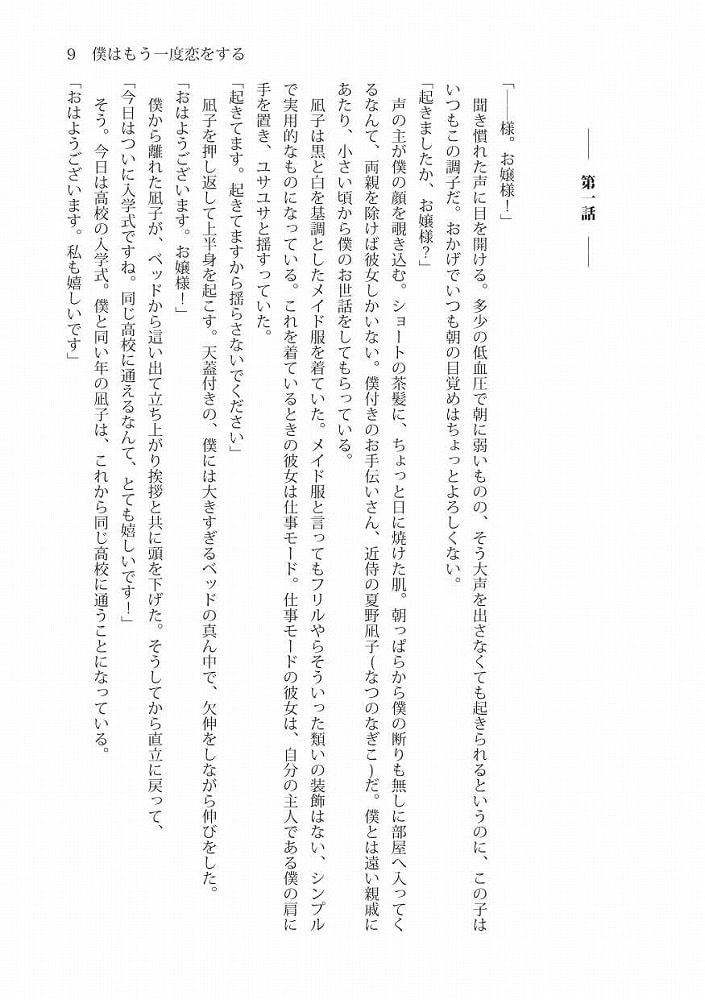 9 僕はもう一度恋をする
―― 第一話 ――
「――様。お嬢様！」
聞き慣れた声に目を開ける。多少の低血圧で朝に弱いものの、そう大声を出さなくても起きられるというのに、この子は
いつもこの調子だ。おかげでいつも朝の目覚めはちょっとよろしくない。
「起きましたか、お嬢様？」
声の主が僕の顔を覗き込む。ショートの茶髪に、ちょっと日に焼けた肌。朝っぱらから僕の断りも無しに部屋へ入ってく
るなんて、両親を除けば彼女しかいない。僕付きのお手伝いさん、近侍の夏野凪子(なつのなぎこ)だ。僕とは遠い親戚に
あたり、小さい頃から僕のお世話をしてもらっている。
凪子は黒と白を基調としたメイド服を着ていた。メイド服と言ってもフリルやらそういった類いの装飾はない、シンプル
で実用的なものになっている。これを着ているときの彼女は仕事モード。仕事モードの彼女は、自分の主人である僕の肩に
手を置き、ユサユサと揺すっていた。
「起きてます。起きてますから揺らさないでください」
凪子を押し返して上半身を起こす。天蓋付きの、僕には大きすぎるベッドの真ん中で、欠伸をしながら伸びをした。
「おはようございます。お嬢様！」
僕から離れた凪子が、ベッドから這い出て立ち上がり挨拶と共に頭を下げた。そうしてから直立に戻って、
「今日はついに入学式ですね。同じ高校に通えるなんて、とても嬉しいです！」
そう。今日は高校の入学式。僕と同い年の凪子は、これから同じ高校に通うことになっている。
「おはようございます。私も嬉しいです」